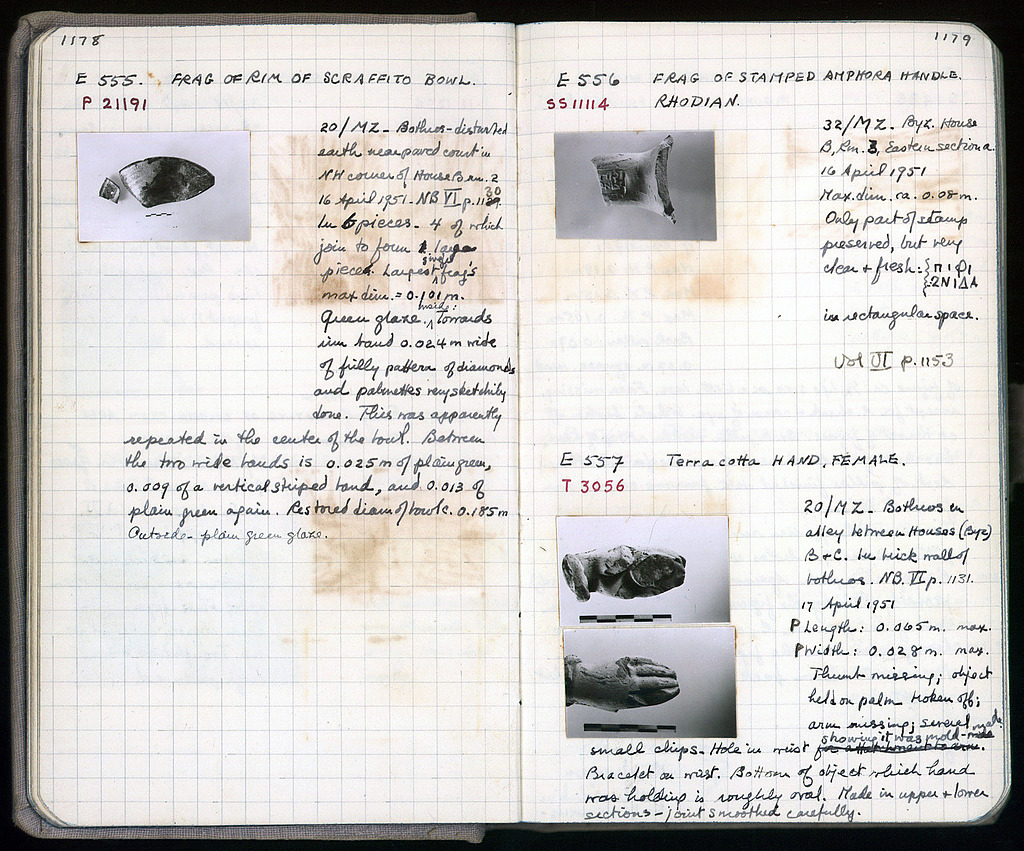 1178
E 555. FRAG OF RIM OF SCRAFFITO BOWL.
P 21191
20/MZ - Bothros - disturbed
earth near paved court in
NH corner of House B rm. 2
16 April 1951. NB VI p. 1130
In 6 pieces. 4 of which
join to form 1 large
piece. Largest single frag's
max dim. = 0.101 m.
Green glaze. inside: Towards
rim band 0.024 m wide
of frilly pattern of diamonds
and palmettes very sketchily
done. This was apparently
repeated in the center of the bowl. Between
the two wide bands is 0.025 m of plain green,
0.009 of a vertical striped band, and 0.013 of
plain green again. Restored diam of bowl c. 0.185 m
Outside - plain green glaze.
1179
E 556 FRAG OF STAMPED AMPHORA HANDLE.
SS 11114 RHODIAN.
32/MZ. Byz. House
B, Rm. 3, Eastern section a.
16 April 1951
Max. dim. ca. 0.08 m.
Only part of stamp
preserved, but very
clear + fresh: {ΠΙΦΙ
{ΣΝΙΔΑ
in rectangular space.
Vol VI p. 1153
E 557 Terra cotta HAND, FEMALE.
T 3056
20/MZ - Bothros in
alley between Houses (Byz)
B + C. In brick wall of
bothros. NB. VI p. 1131.
17 April 1951
P Length: 0.065 m. max.
P Width: 0.028 m. max.
Thumb missing; object
held on palm broken off;
arm missing; several
showing it was mold-made
small chips - Hole in wrist for attachment to arm.
Bracelet on wrist. Bottom of object which hand
was holding is roughly oval. Made in upper + lower
sections - joint smoothed carefully.